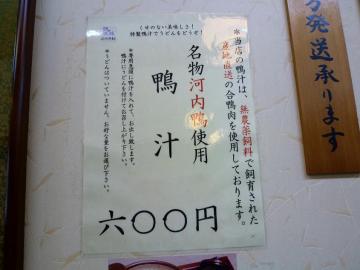 方発送承ります
くせのない美味しさ！
特製鴨汁でうどんをどうぞ！
＊当店の鴨汁は、無農薬飼料で飼育された
産地直送の合鴨肉を使用しております。
名物河内鴨使用
鴨汁
＊専用丸頭に鴨汁を入れて、お出し致します。
鴨汁にうどんを付けてお召し上がり下さい。
＊うどんはついていません。お好きな量をお選び下さい。
六〇〇円